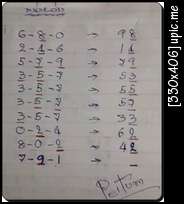 6-8-0 → 98
2-4-6 → 14
5-7-9 → 79
3-5-7 → 53
3-5-7 → 55
3-5-7 → 57
3-5-7 → 33
0-2-4 → 62
8-0-2 → 42
7-9-1 →
[330x406] uplc.me